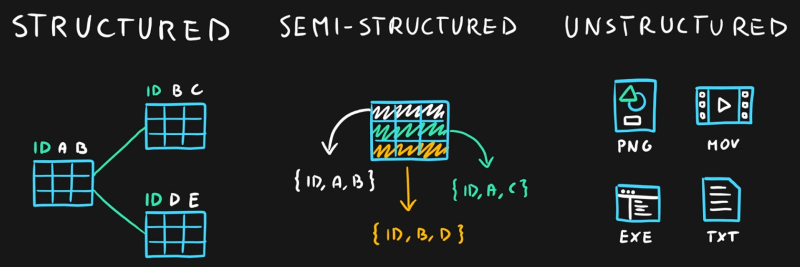 STRUCTURED
ID B C
ID A B
ID D E
SEMI-STRUCTURED
{ID, A, B}
{ID, A, C}
{ID, B, D}
UNSTRUCTURED
PNG
MOV
EXE
TXT